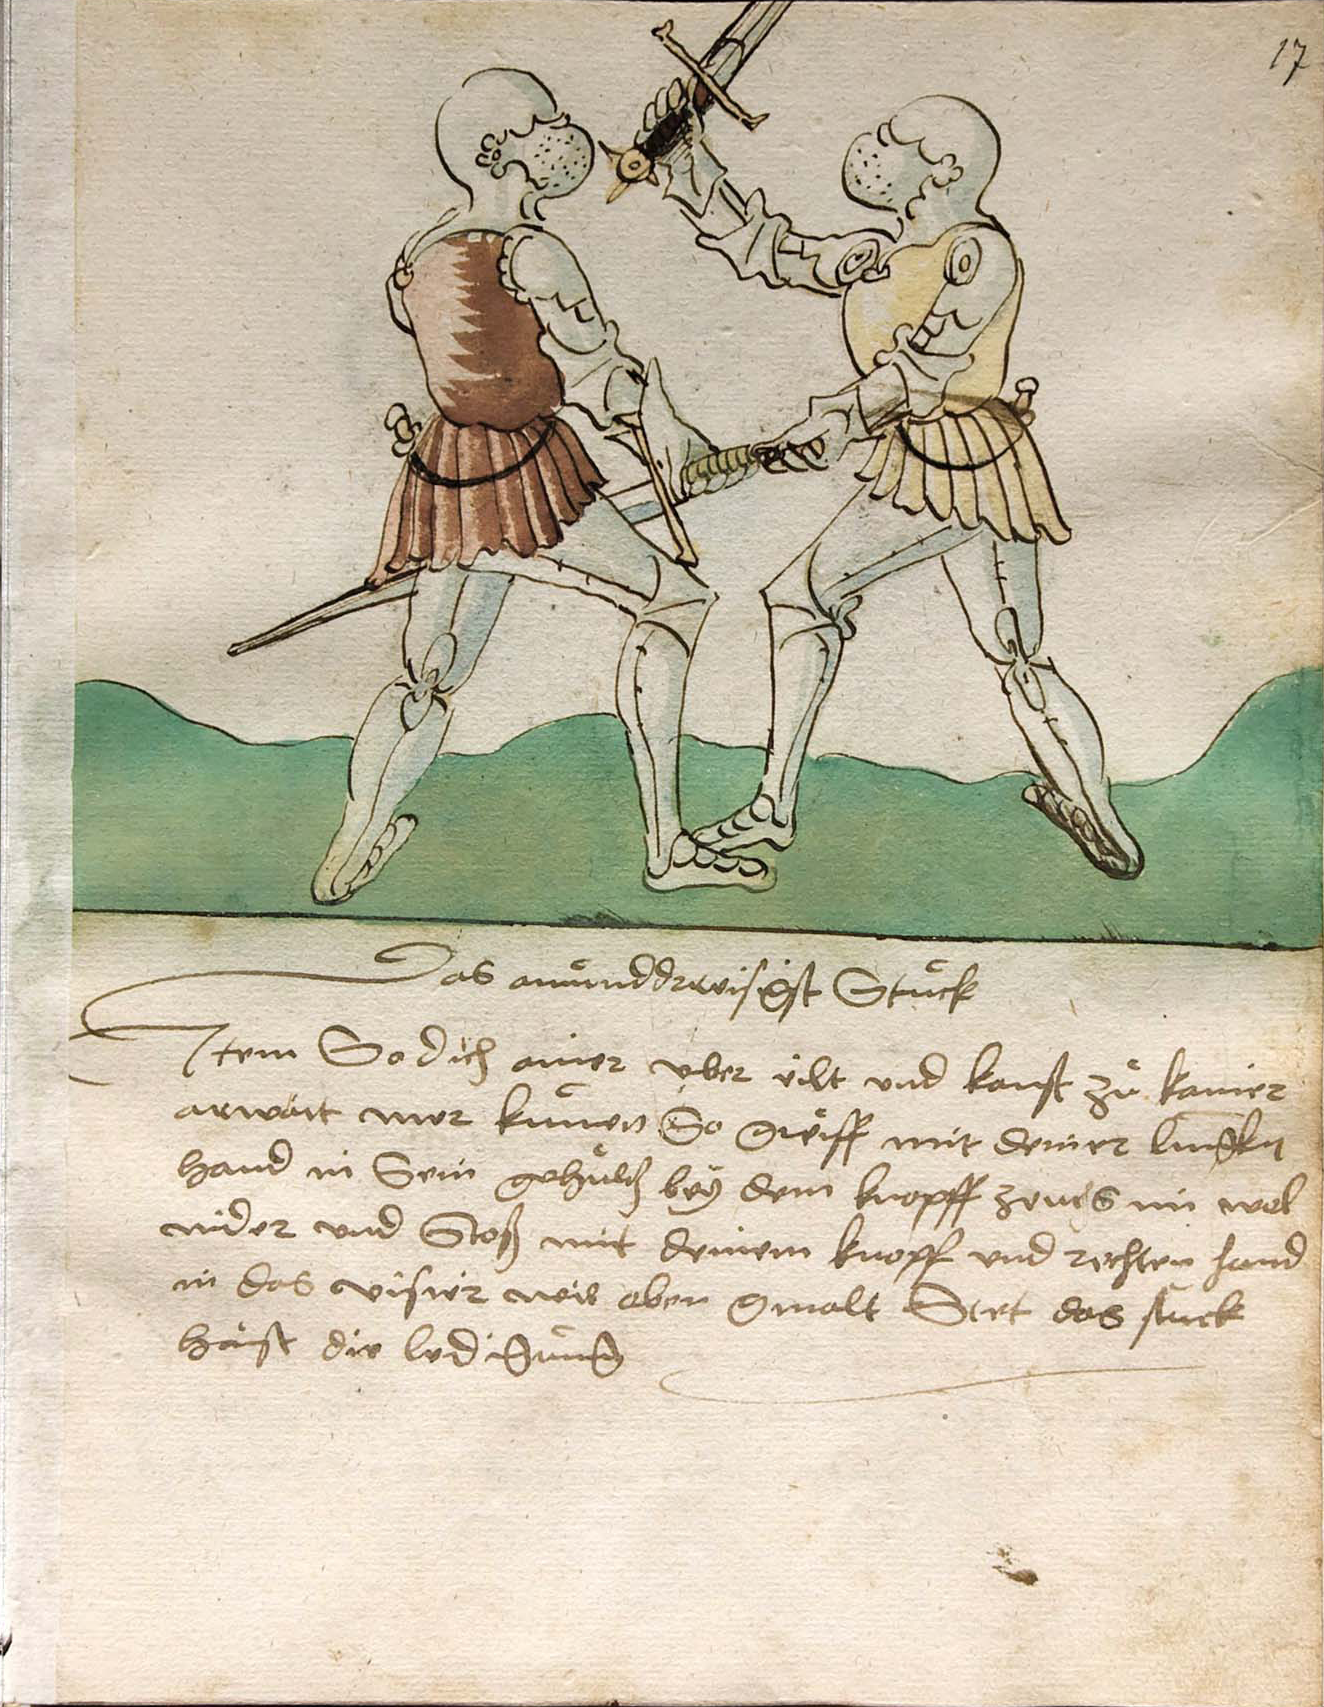 17
Das ainunddreisigist Stuck
Item So dich ainer vber eilt vnd kanst zů kainer
arwait mer kumen So greiff mit deiner lincken
hand in Sein gehültz bey dem knopff zeuchs im wol
nider vnd Stoß mit deinem knopff vnd rechten hand
in das visier wie oben gmalt Stet das stuck
haist die